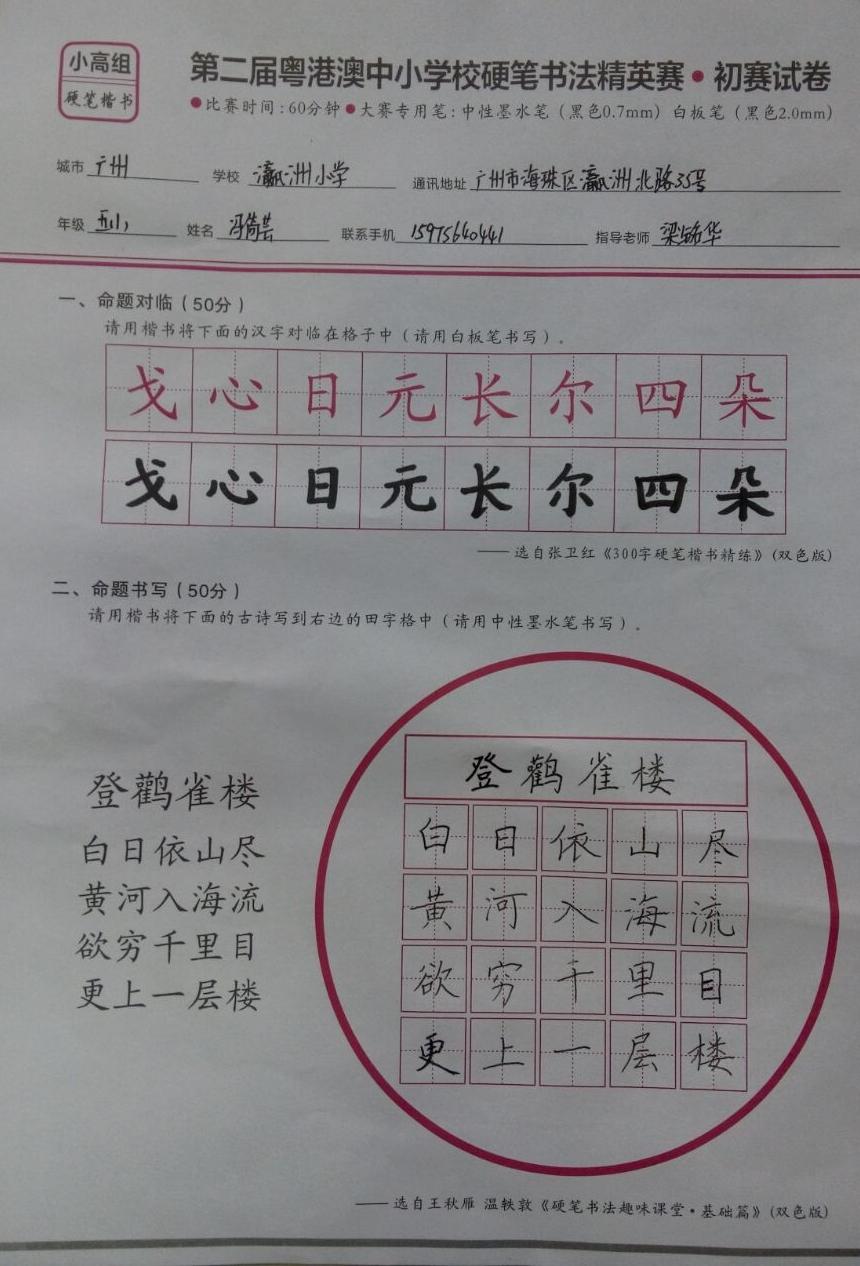 小高组
硬笔楷书
第二届粤港澳中小学校硬笔书法精英赛·初赛试卷
●比赛时间:60分钟●大赛专用笔:中性墨水笔(黑色0.7mm)白板笔(黑色2.0mm)
城市 广州 学校 瀛洲小学 通讯地址 广州市海珠区瀛洲北路35号
年级 姓名 冯倩芸 联系手机 15975640441 指导老师 梁 华
一、命题对临(50分)
请用楷书将下面的汉字对临在格子中(请用白板笔书写)。
戈心日元长尔四朵
戈心日元长尔四朵
—— 选自张卫红《300字硬笔楷书精练》(双色版)
二、命题书写(50分)
请用楷书将下面的古诗写到右边的田字格中(请用中性墨水笔书写)。
登鹳雀楼
白日依山尽
黄河入海流
欲穷千里目
更上一层楼
登鹳雀楼
白日依山尽
黄河入海流
欲穷千里目
更上一层楼
—— 选自王秋雁 温轶敦《硬笔书法趣味课堂·基础篇》(双色版)